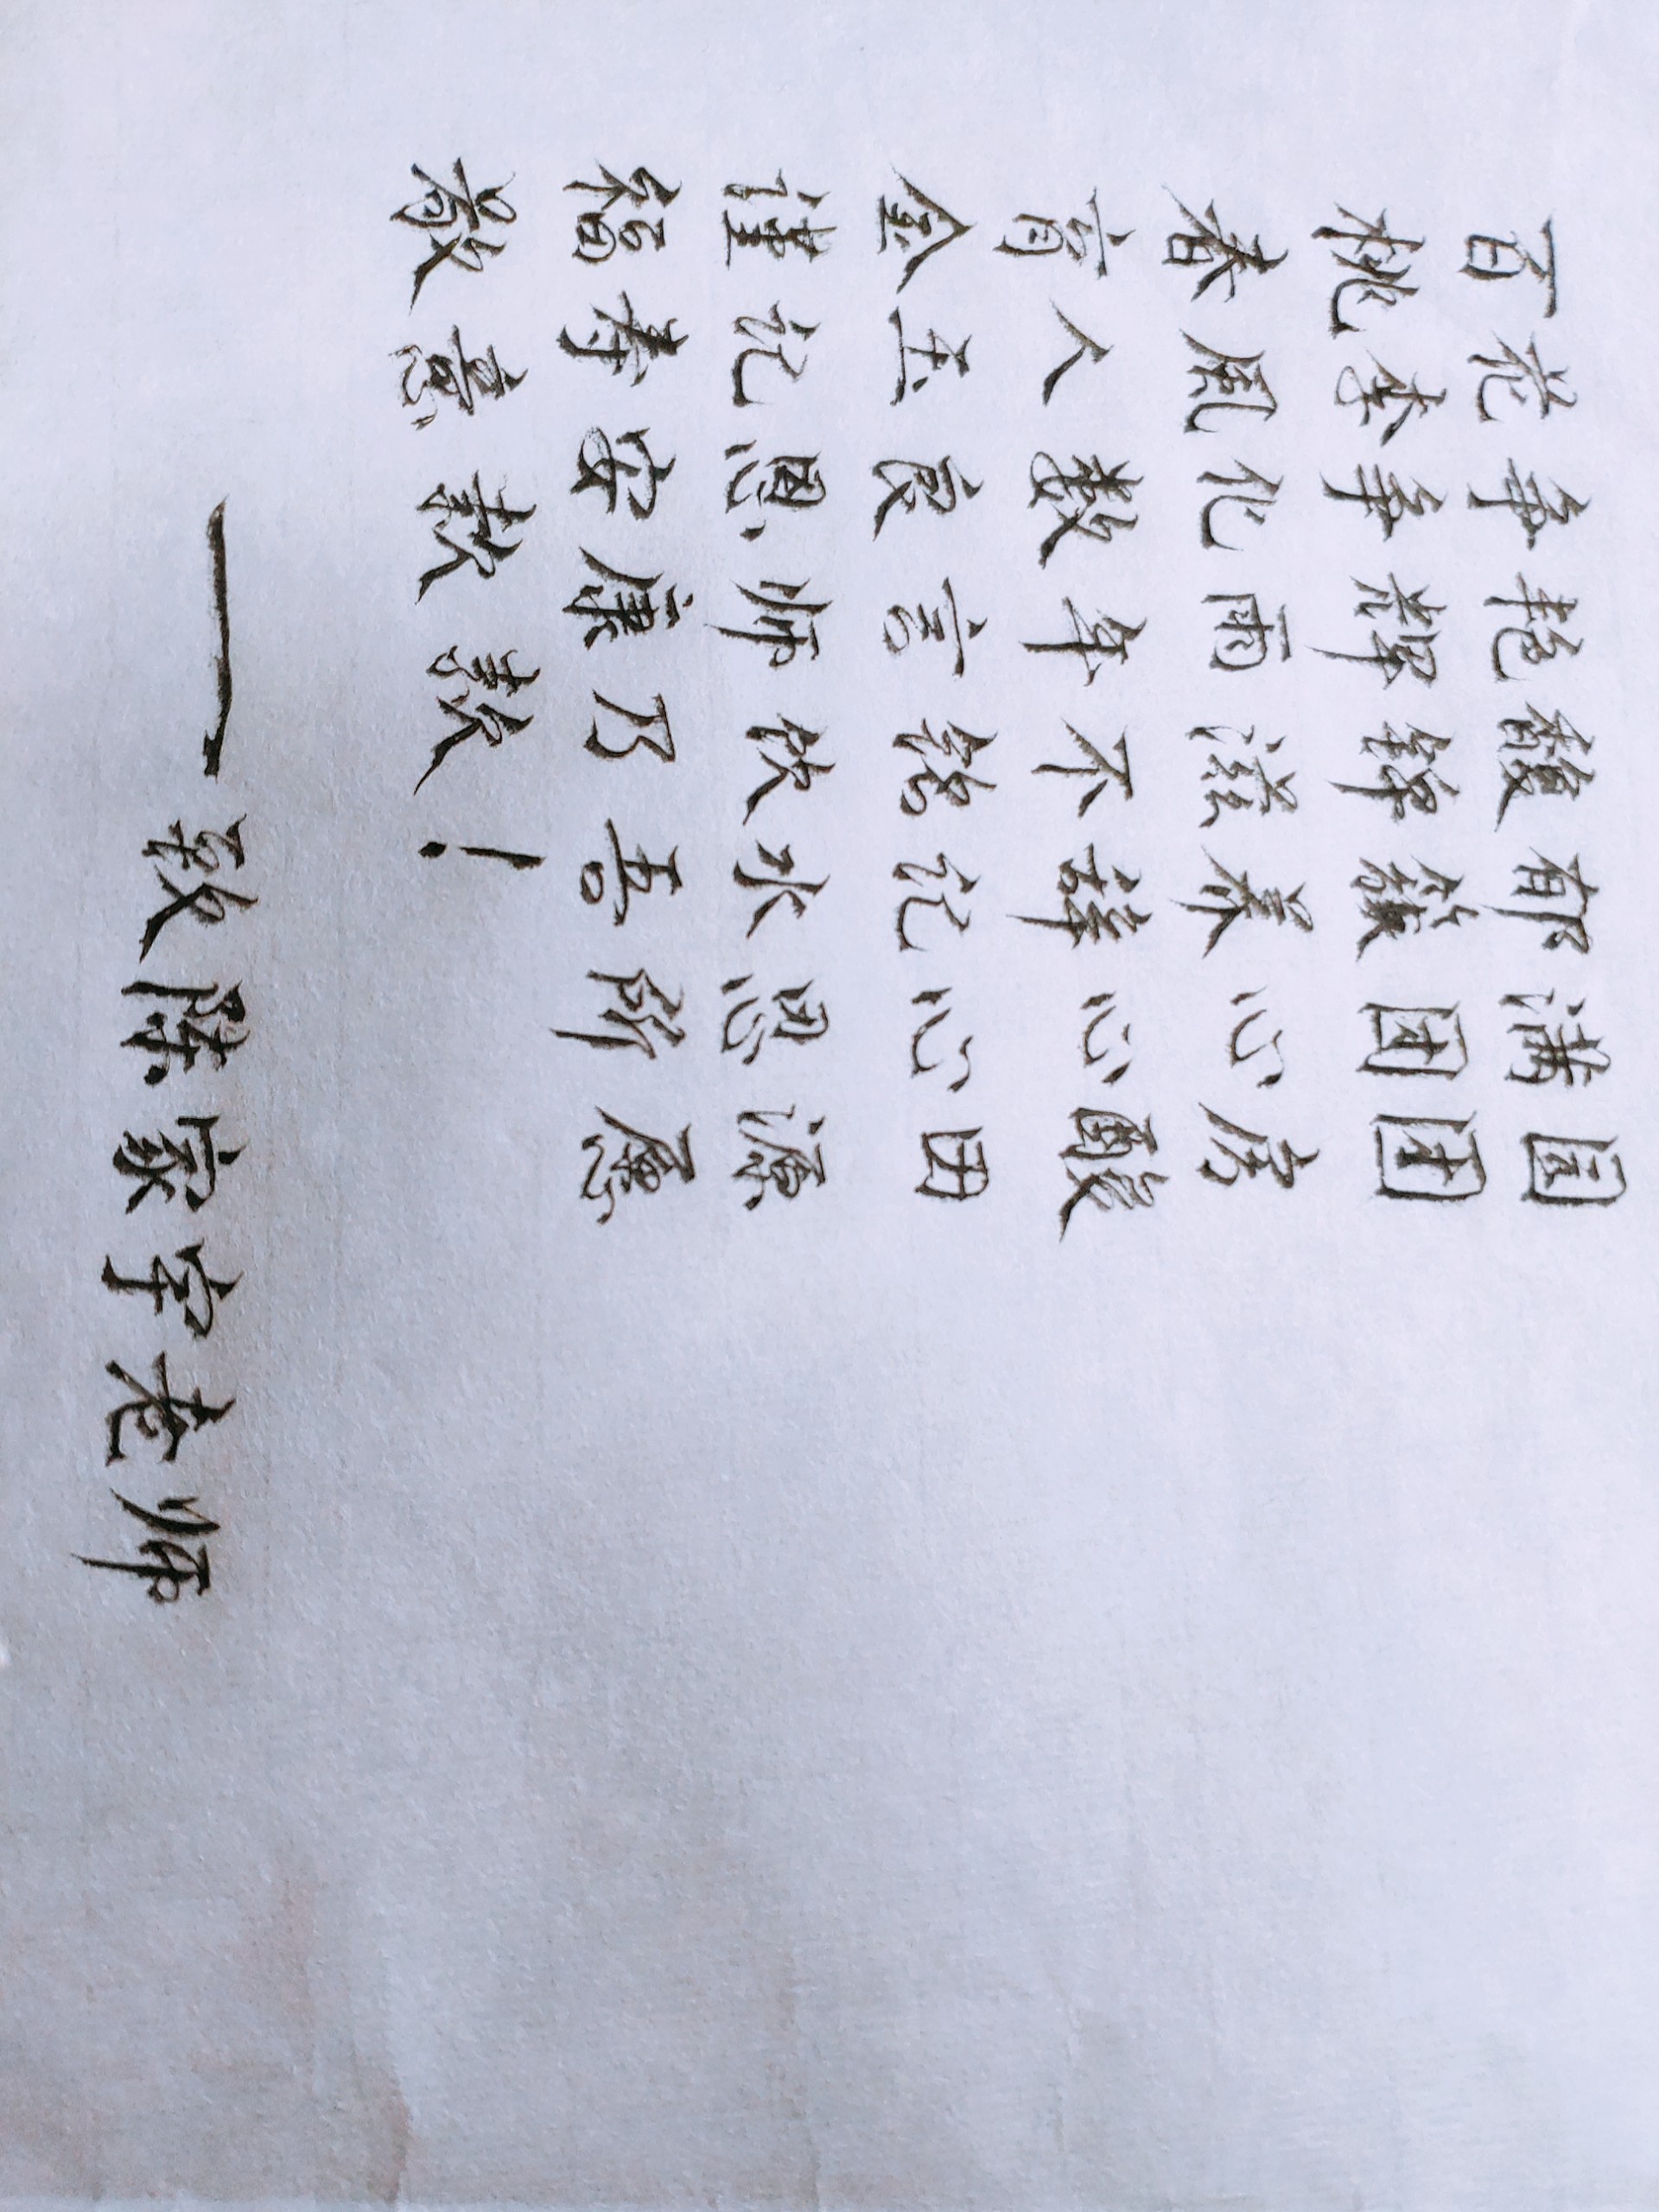 百花争艳馥郁满园
桃李争辉锦簇团团
春風化雨滋养心房
育人数年不辞心酸
金玉良言铭记心田
谨记恩师饮水思源
福寿安康乃吾所愿
敬意款款！
——致陈家宇老师